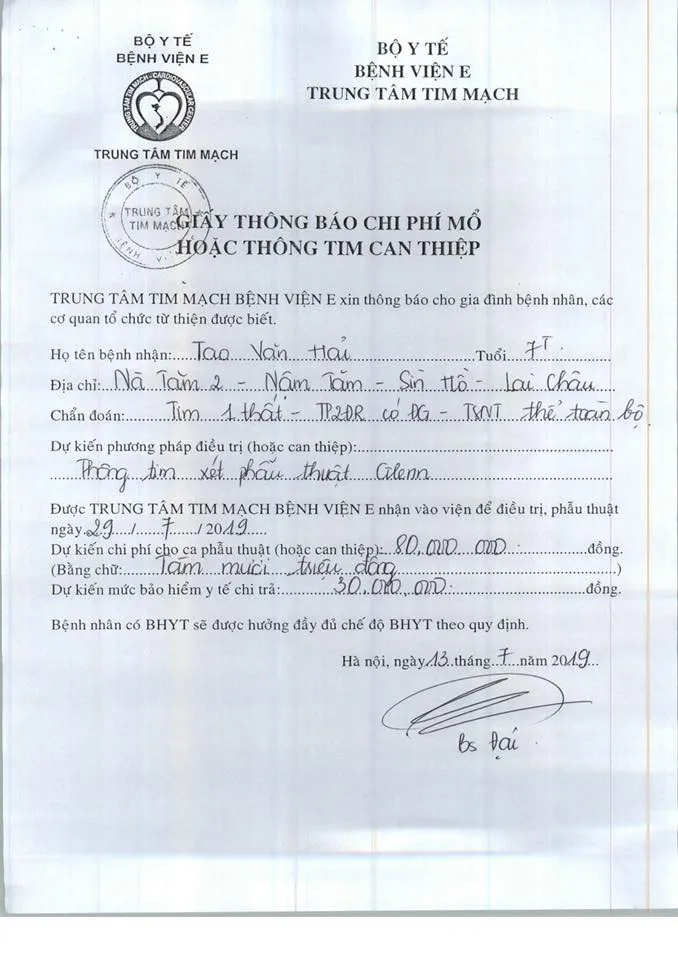 BỘ Y TẾ
BỆNH VIỆN E
TRUNG TÂM TIM MẠCH - CARDIOVASCULAR CENTER
TRUNG TÂM TIM MẠCH
BỘ Y TẾ
BỆNH VIỆN E
TRUNG TÂM TIM MẠCH
BỘ Y TẾ
TRUNG TÂM
TIM MẠCH
BỆNH VIỆN
GIẤY THÔNG BÁO CHI PHÍ MỔ
HOẶC THÔNG TIM CAN THIỆP
TRUNG TÂM TIM MẠCH BỆNH VIỆN E xin thông báo cho gia đình bệnh nhân, các
cơ quan tổ chức từ thiện được biết.
Họ tên bệnh nhân: Tao Văn Hải Tuổi 7T
Địa chỉ: Nà Tăm 2 - Nậm Tăm - Sìn Hồ - Lai Châu
Chẩn đoán: Tim 1 thất - TP2ĐR có ĐG - TSNT thể toàn bộ
Dự kiến phương pháp điều trị (hoặc can thiệp):
Thông tim xét phẫu thuật Glenn
Được TRUNG TÂM TIM MẠCH BỆNH VIỆN E nhận vào viện để điều trị, phẫu thuật
ngày 29 / 7 / 2019
Dự kiến chi phí cho ca phẫu thuật (hoặc can thiệp): 80.000.000 đồng.
(Bằng chữ: Tám mươi triệu đồng)
Dự kiến mức bảo hiểm y tế chi trả: 30.000.000 đồng.
Bệnh nhân có BHYT sẽ được hưởng đầy đủ chế độ BHYT theo quy định.
Hà nội, ngày 13 tháng 7 năm 2019
Bs Đại